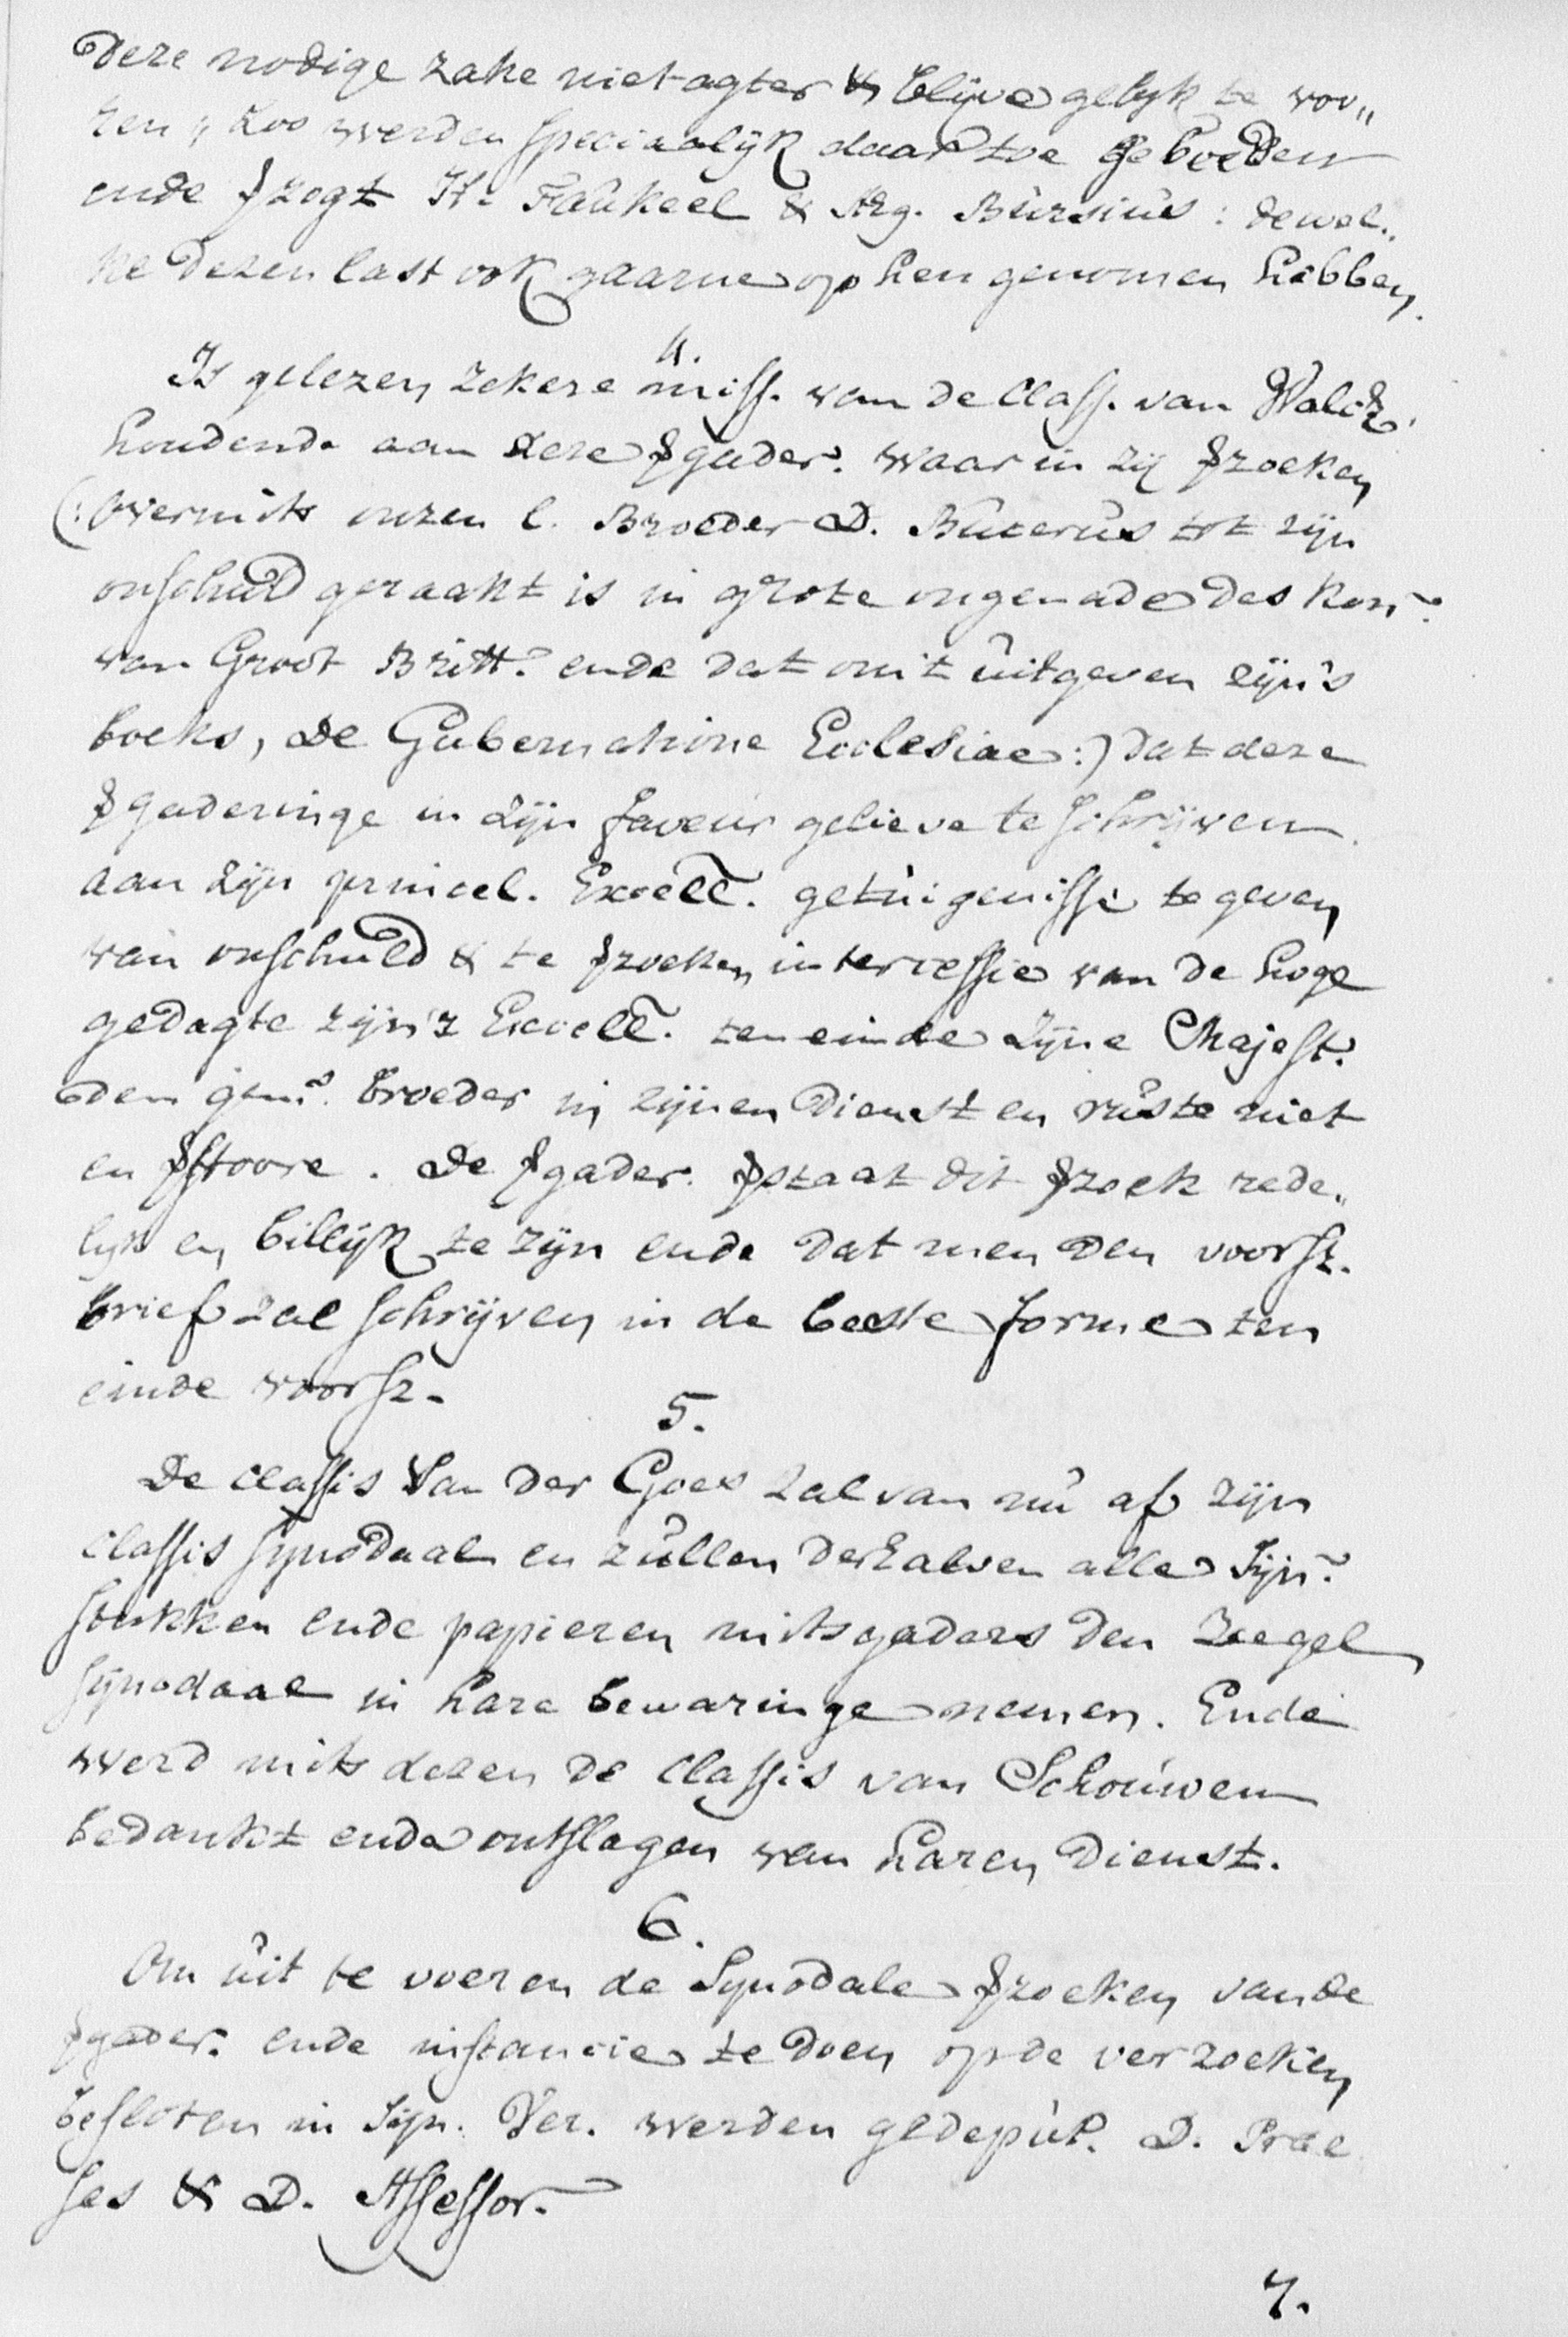 Deze nodige zake niet agter & blijve gelijk te vou„
ren; zoo werden speciaalijk daar toe gebeden
ende ꝟzogt H.r Faukeel & Arg. Bursius: dewel„
ke dezen last ook gaarne op hen genomen hebben.
4.
Is gelezen zekere miss. van de Class. van Walch.
houdende aan deze ꝟgader. waar in zij ꝟzoeken
(: overmits onzen l. Broeder D. Bucerus tot zijn
onschuld geraakt is in grote ongenade des Kon.
van Groot Britt. ende dat om 't uitgeven zijn's
boeks, De Gubernatione Ecclesiae:) dat deze
ꝟgaderinge in zijn faveur gelieve te schrijven
aan zijn princel. Excell. getuigenisse te geven
van onschuld & te ꝟzoeken intercessie van de hoge
gedagte zijn'z Excell. ten einde zijne Majest.
den gem. broeder in zijnen dienst en ruste niet
en ꝟstoore. De ꝟgader. ꝟstaat dit ꝟzoek rede„
lijk en billijk te zijn ende dat men den voorsz.
brief zal schrijven in de beste forme ten
einde voorsz.
5.
De classis Van der Goes zal van nu af zijn
classis synodaal en zullen derhalven alle Syn.
stukken ende papieren mitsgaders den Zeegel
synodaal in hare bewaringe nemen. Ende
werd mits dezen de Classis van Schouwen
bedankt ende ontslagen van haren dienst.
6.
Om uit te voeren de Synodale ꝟzoeken van de
ꝟgader. ende instancie te doen op de verzoeken
besloten in Syn. Ver. werden gedeput. D. Prae
ses & D. Assessor.
7.